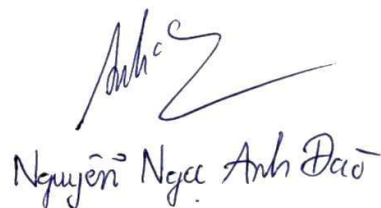 Anh
Nguyễn Ngọc Anh Đào